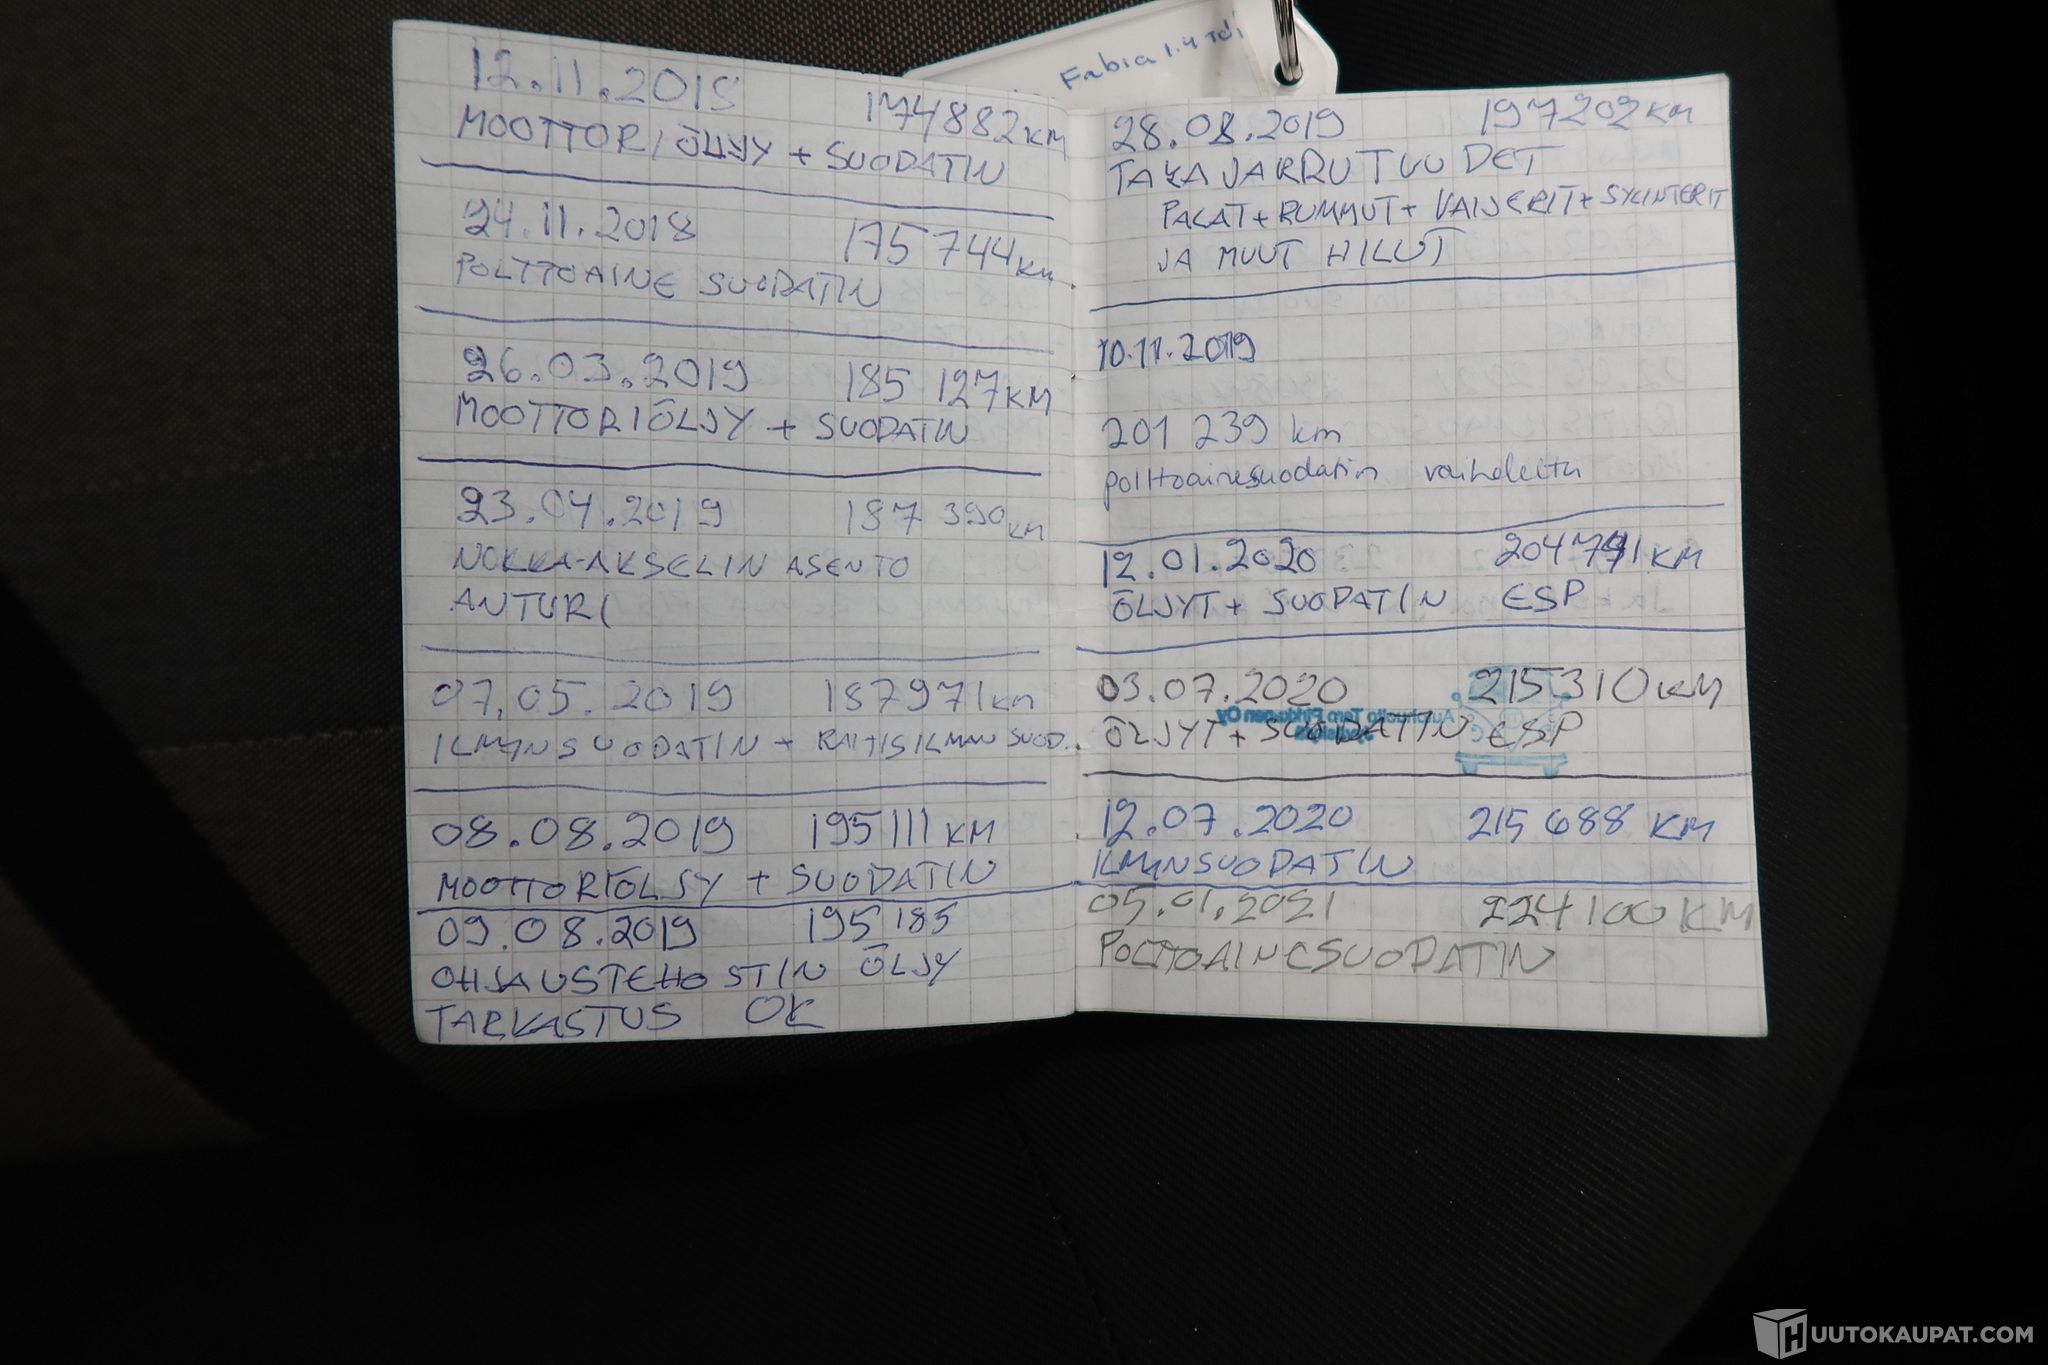 Fabia 1.4 Tdi
12.11.2018 174882KM
MOOTTORIÖLJY + SUODATIN
24.11.2018 175 744KM
POLTTOAINE SUODATIN
26.03.2019 185 127KM
MOOTTORIÖLJY + SUODATIN
23.04.2019 187 390KM
NOKKA-AKSELIN ASENTO
ANTURI
07.05.2019 187971km
ILMANSUODATIN + RAITISILMAN SUOD.
08.08.2019 195111 KM
MOOTTORIÖLJY + SUODATIN
09.08.2019 195 185
OHJAUSTEHOSTIN ÖLJY
TARKASTUS OK
28.08.2019 197202KM
TAKAJARRUT UUDET
PALAT + RUMMUT + VAIJERIT + SYLINTERIT
JA MUUT HILUT
10.11.2019
201 239 km
polttoainesuodatin vaihdettu
12.01.2020 KM
ÖLJYT + SUODATIN ESP
03.07.2020 215310KM
ÖLJYT + SUODATIN ESP
12.07.2020 215 688 KM
ILMANSUODATIN
05.01.2021 224100KM
POLTTOAINESUODATIN
HUUTOKAUPAT.COM